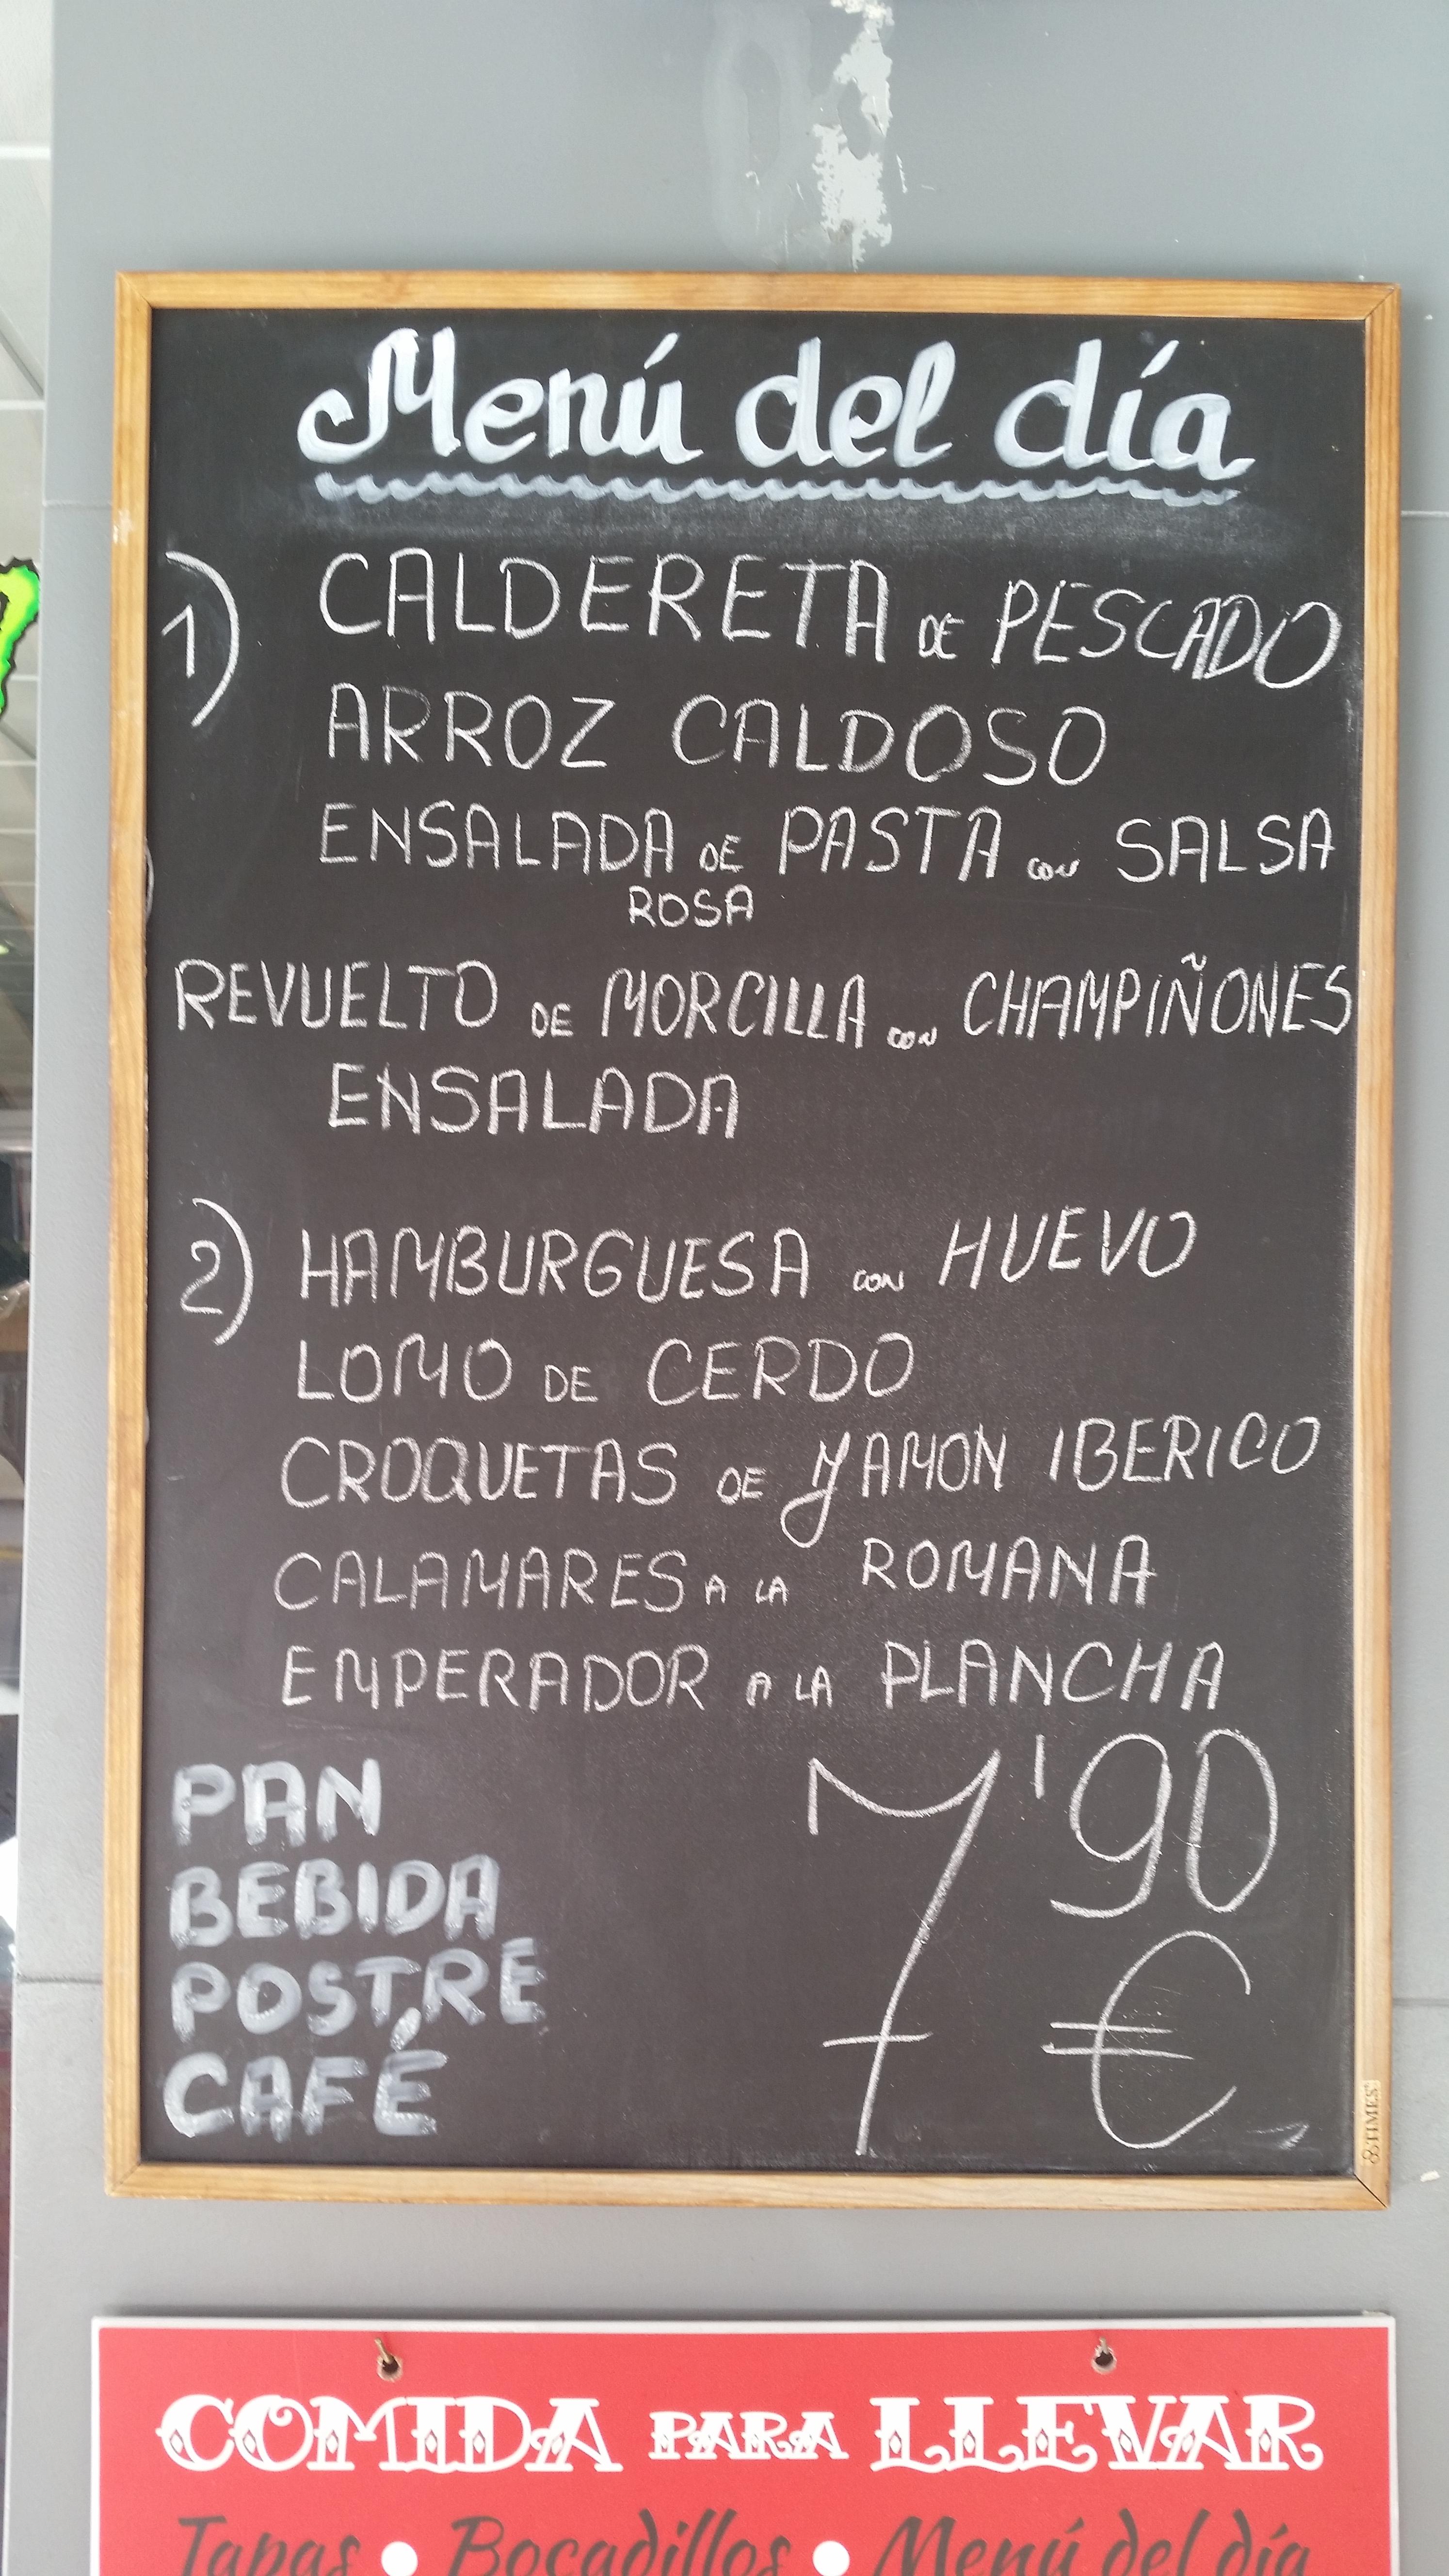 Menú del día
1) CALDERETA DE PESCADO
ARROZ CALDOSO
ENSALADA DE PASTA CON SALSA
ROSA
REVUELTO DE MORCILLA CON CHAMPIÑONES
ENSALADA
2) HAMBURGUESA CON HUEVO
LOMO DE CERDO
CROQUETAS DE JAMON IBERICO
CALAMARES A LA ROMANA
EMPERADOR A LA PLANCHA
PAN
BEBIDA
POSTRE
CAFÉ
7'90
€
TIMES
COMIDA PARA LLEVAR
Tapas • Bocadillos • Menú del día